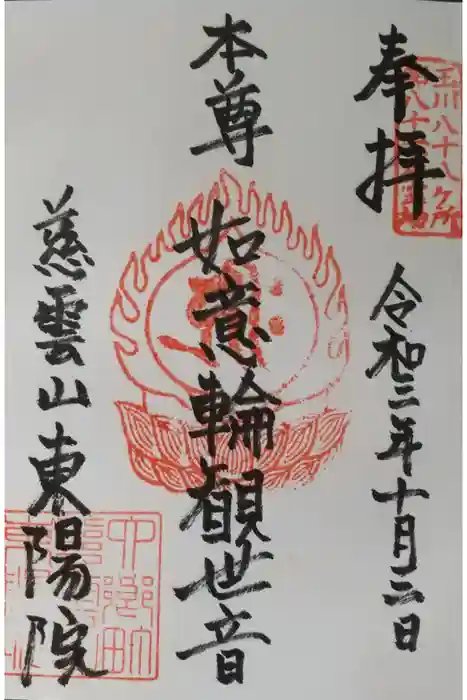 奉拝
令和三年十月二日
本尊
如意輪観世音
慈雲山東陽院
玉川八十八ヶ所